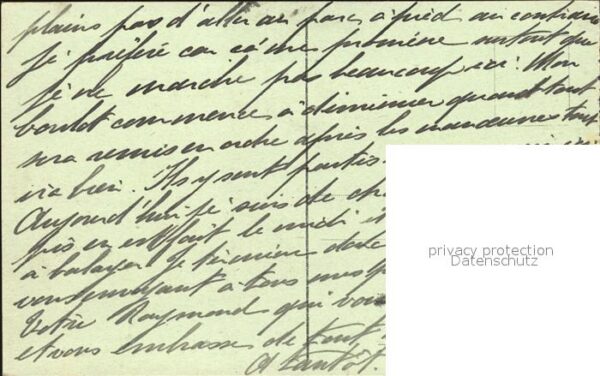 plains pas d'aller au parc à pied au contraire
je préfère car ça me promène surtout que
je ne marche pas beaucoup ici. Mon
boulot commence à diminuer quand tout
sera remis en ordre après les manœuvres tout
ira bien. Ils y sont partis
Aujourd'hui je suis de
en est fait le midi
à balayer Je termine donc
vous envoyant à tous mes
Votre Raymond qui vous
et vous embrasse de tout
A tantôt.
privacy protection
Datenschutz